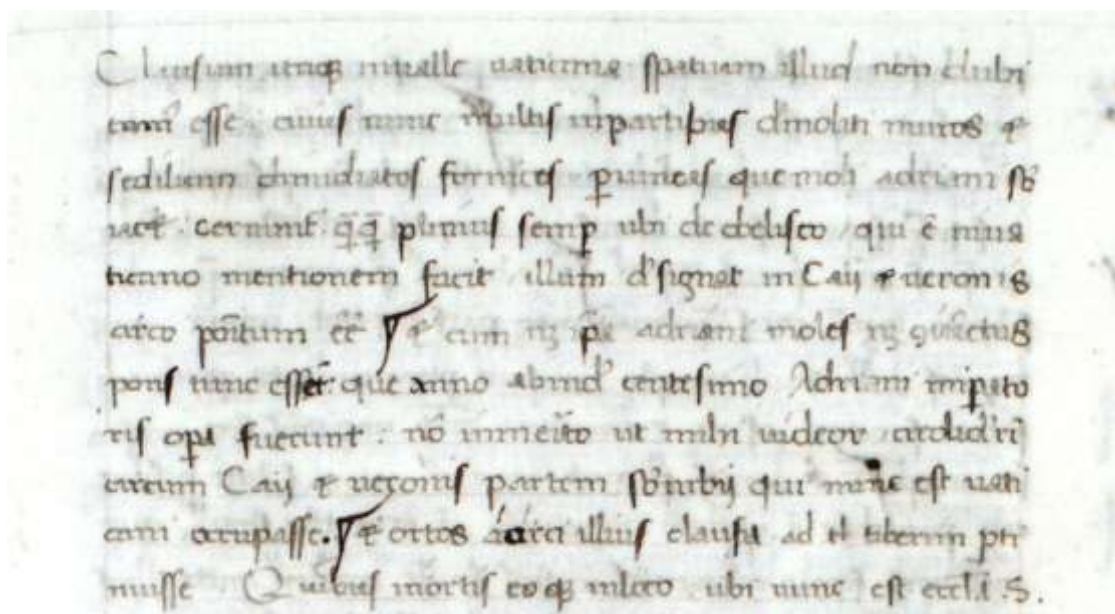 Clusum itaq; in ualle uaticana spatium illud non dubi
tam' esse. cuius nunc multis in partibus d'moliti muros &
sedilium dimidiatos fornices p uineas que moli adriani sb'
iacet. cernunt. q̄q̄ plinius semp ubi de obelisco qui ē in ua
ticano mentionem facit illum d'signat in Caij & neronis
circo poītum eē & cum nq; ip̄a adriani moles nq; 9nectus
pons tunc esset que anno abind' centesimo Adriani impato
ris opa fuerunt: nō immerito ut mihi uideor
circum Caij & neronis partem sb'urbij qui nunc est uati
cani occupasse. & ortos circi illius clausa ad tiberim pti
nuisse Quibus in ortis eoq; in loco ubi nunc est eccl.a S.